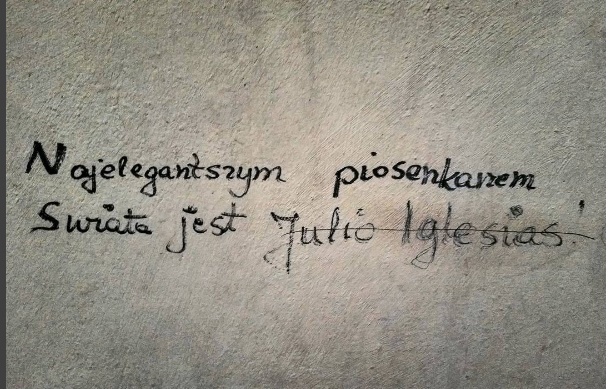 Najelegantszym piosenkarzem
Swiata jest Julio Iglesias!